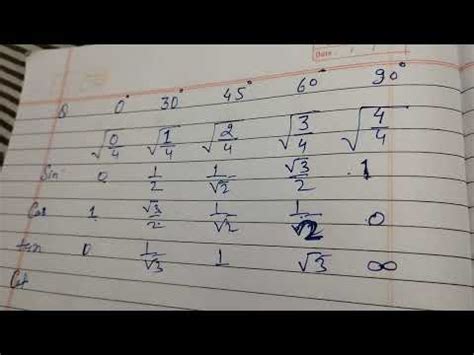 Date :
θ 0° 30° 45° 60° 90°
√0/4 √1/4 √2/4 √3/4 √4/4
Sin 0 1/2 1/√2 √3/2 1
Cos 1 √3/2 1/√2 1/√2 0
tan 0 1/√3 1 √3 ∞
Cot